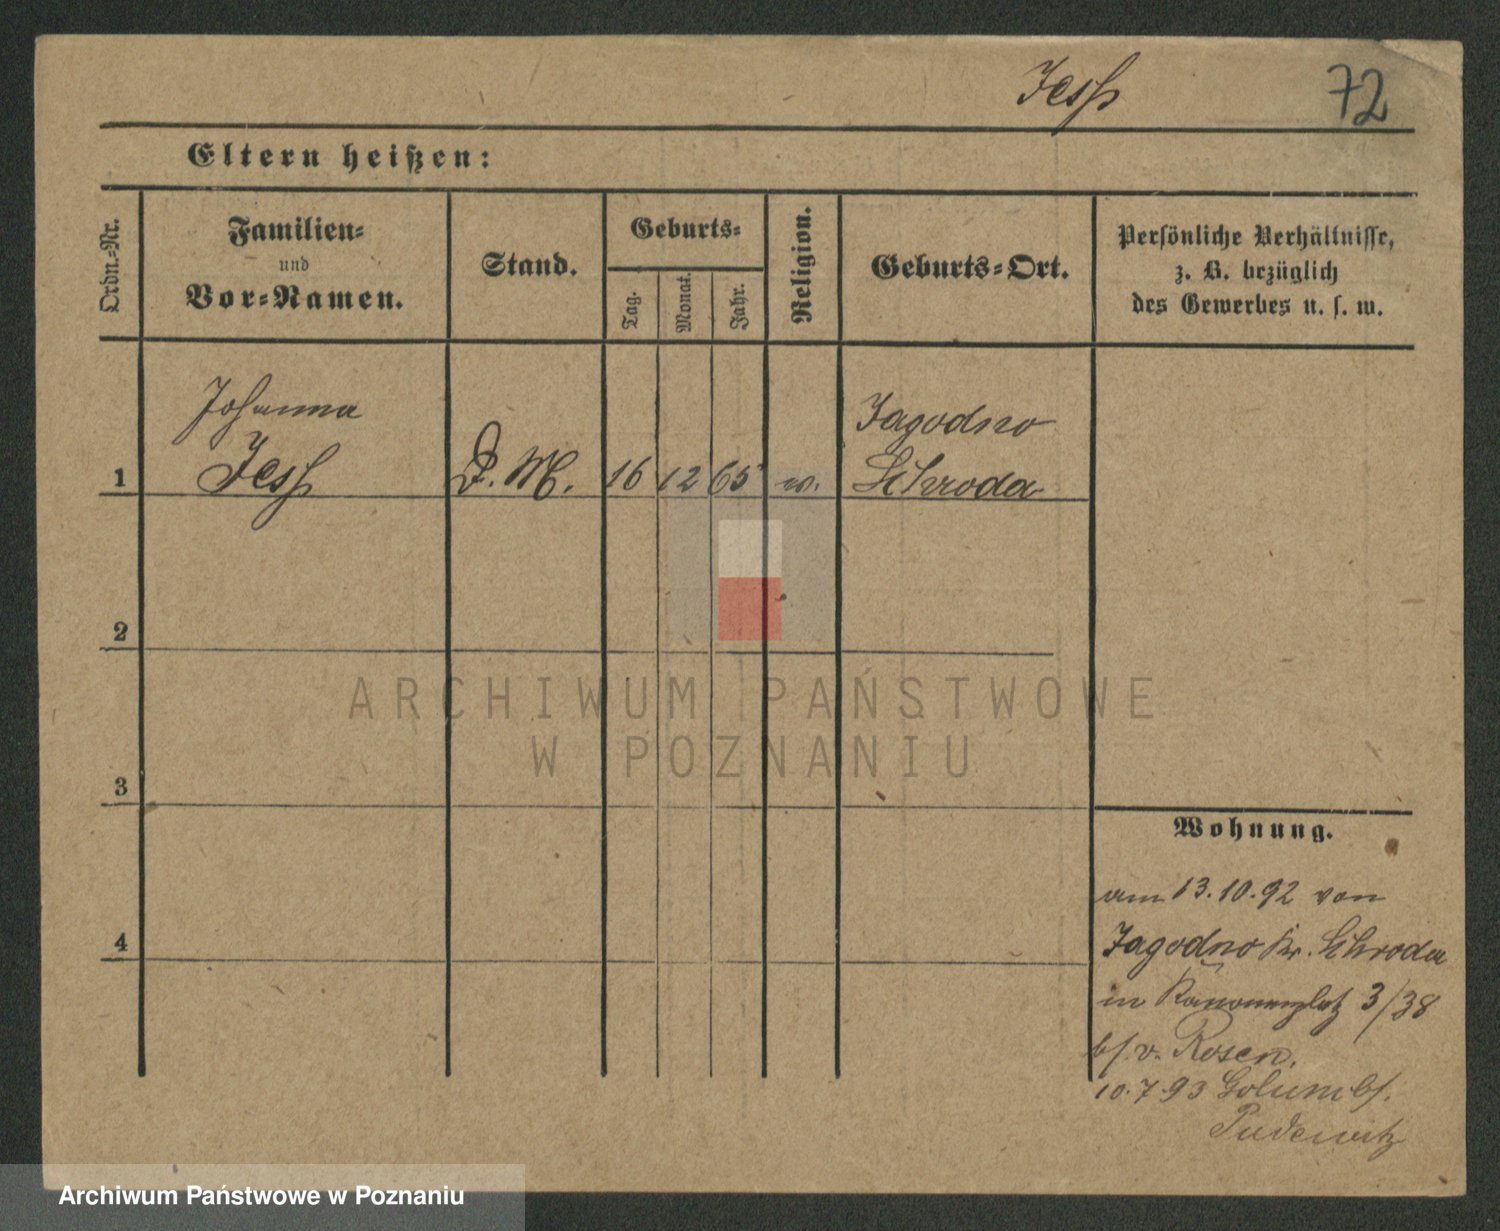 Jess 72
Eltern heißen:
Ordn.-Nr.
Familien-
und
Vor-Namen.
Stand.
Geburts-
Tag.
Monat.
Jahr.
Religion.
Geburts-Ort.
Persönliche Verhältnisse,
z. B. bezüglich
des Gewerbes u. s. w.
Johanna
Jagodno
1 Jess D. M. 16 12 65 Schroda
2
ARCHIWUM PAŃSTWOWE
W POZNANIU
3
Wohnung.
am 13.10.92 von
4
Jagodno Kr. Schroda
in Kanonenplatz 3/38
b/. v. Rosen.
10.7.93 b/.
Pudewitz
Archiwum Państwowe w Poznaniu